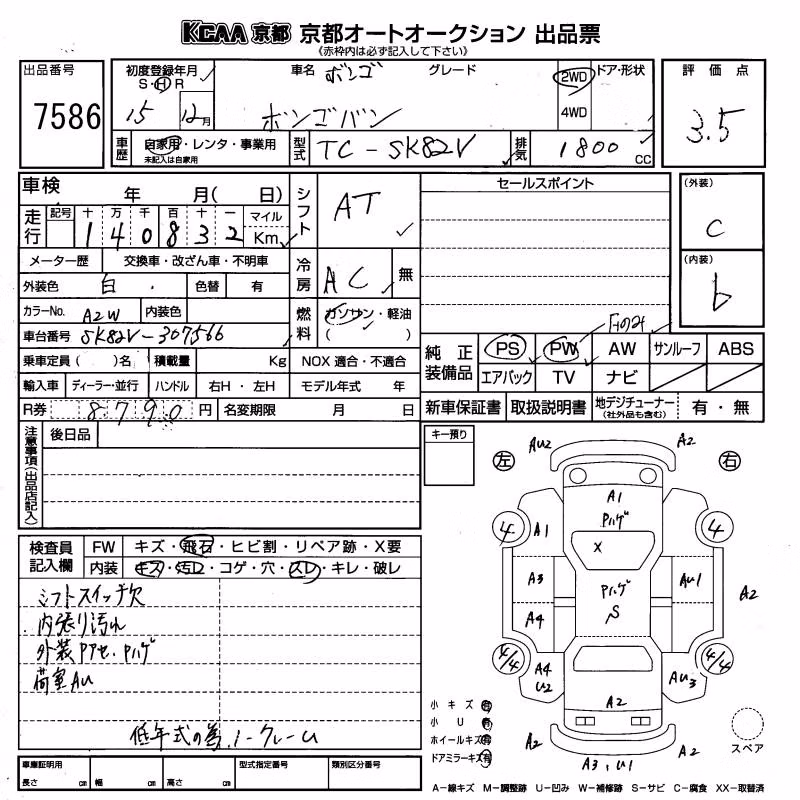 KCAA 京都 京都オートオークション 出品票
《赤枠内は必ず記入して下さい》
出品番号 7586
初度登録年月 S・H・R 15 12月
車名 ボンゴ グレード ボンゴバン
2WD 4WD ドア・形状
評価点 3.5
車歴 自家用・レンタ・事業用 未記入は自家用
型式 TC-SK82V
排気 1800 CC
車検 年 月( 日)
走行 記号 十 万 千 百 十 一 マイル
1 4 0 8 3 2 Km
シフト AT
セールスポイント
(外装) C
(内装) b
メーター歴 交換車・改ざん車・不明車
冷房 AC 無
外装色 白 色替 有
カラーNo. A2W 内装色
燃料 ガソリン・軽油 ( )
車台番号 SK82V-307566
Fのみ
乗車定員( )名 積載量 Kg NOX 適合・不適合
純正装備品 PS PW AW サンルーフ ABS
エアバック TV ナビ
輸入車 ディーラー・並行 ハンドル 右H・左H モデル年式 年
R券 8790円 名変期限 月 日
新車保証書 取扱説明書 地デジチューナー (社外品も含む) 有・無
注意事項(出品店記入) 後日品
キー預り
左 右
AU2 A2 A2
A1
Pハゲ
4 A1 X 4
A3 Pハゲ AU1 A2
A4 S
4/4 A4 U2 AU3 4/4
A2
A2 A3,U1 A2
検査員記入欄 FW キズ・飛石・ヒビ割・リペア跡・X要
内装 キズ・汚レ・コゲ・穴・スレ・キレ・破レ
シフトスイッチ欠
内張り汚れ
外装Pアセ、Pハゲ
荷室AU
低年式の為ノークレーム
小キズ 有
小U 有
ホイールキズ 有
ドアミラーキズ 有
スペア
車庫証明用 長さ cm 幅 cm 高さ cm 型式指定番号 類別区分番号
A-線キズ M-調整跡 U-凹み W-補修跡 S-サビ C-腐食 XX-取替済